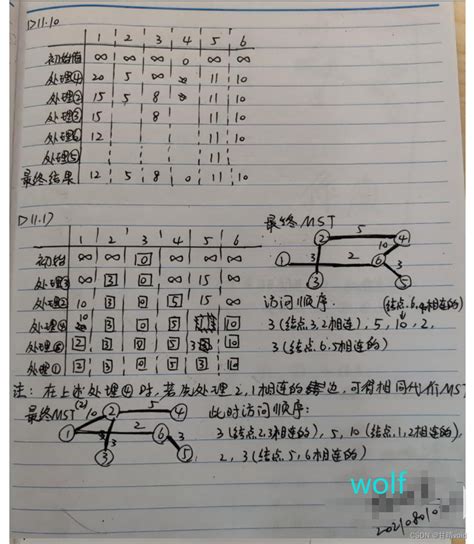 D11.10
1 2 3 4 5 6
初始值 ∞ ∞ ∞ 0 ∞ ∞
处理④ 20 5 ∞ 11 10
处理② 15 5 8 11 10
处理③ 15 8 11 10
处理⑥ 12 11 10
处理⑤ 11
最终结果 12 5 8 0 11 10
D11.17
最终MST
1 2 3 4 5 6
初始 ∞ ∞ 0 ∞ ∞ ∞
处理③ ∞ 3 0 ∞ 15 ∞
处理② 10 3 0 5 15 ∞
处理④ 10 3 0 5 10
处理⑥ 2 3 0 5 3 10
处理① 2 3 0 5 3 10
② 5 ④
10
① 3 2 ⑥ 3
③ ⑤
访问顺序: (结点6,4相连的)
3(结点3,2相连), 5, 10, 2,
3(结点6,5相连的)
注: 在上述处理④时, 若先处理2,1相连的边, 可得相同代价MST
最终MST(2)
10 ② 5 ④
① 3 2 ⑥ 3
③ ⑤
此时访问顺序:
3(结点2,3相连的), 5, 10(结点1,2相连的),
2, 3(结点5,6相连的)
wolf
20210801